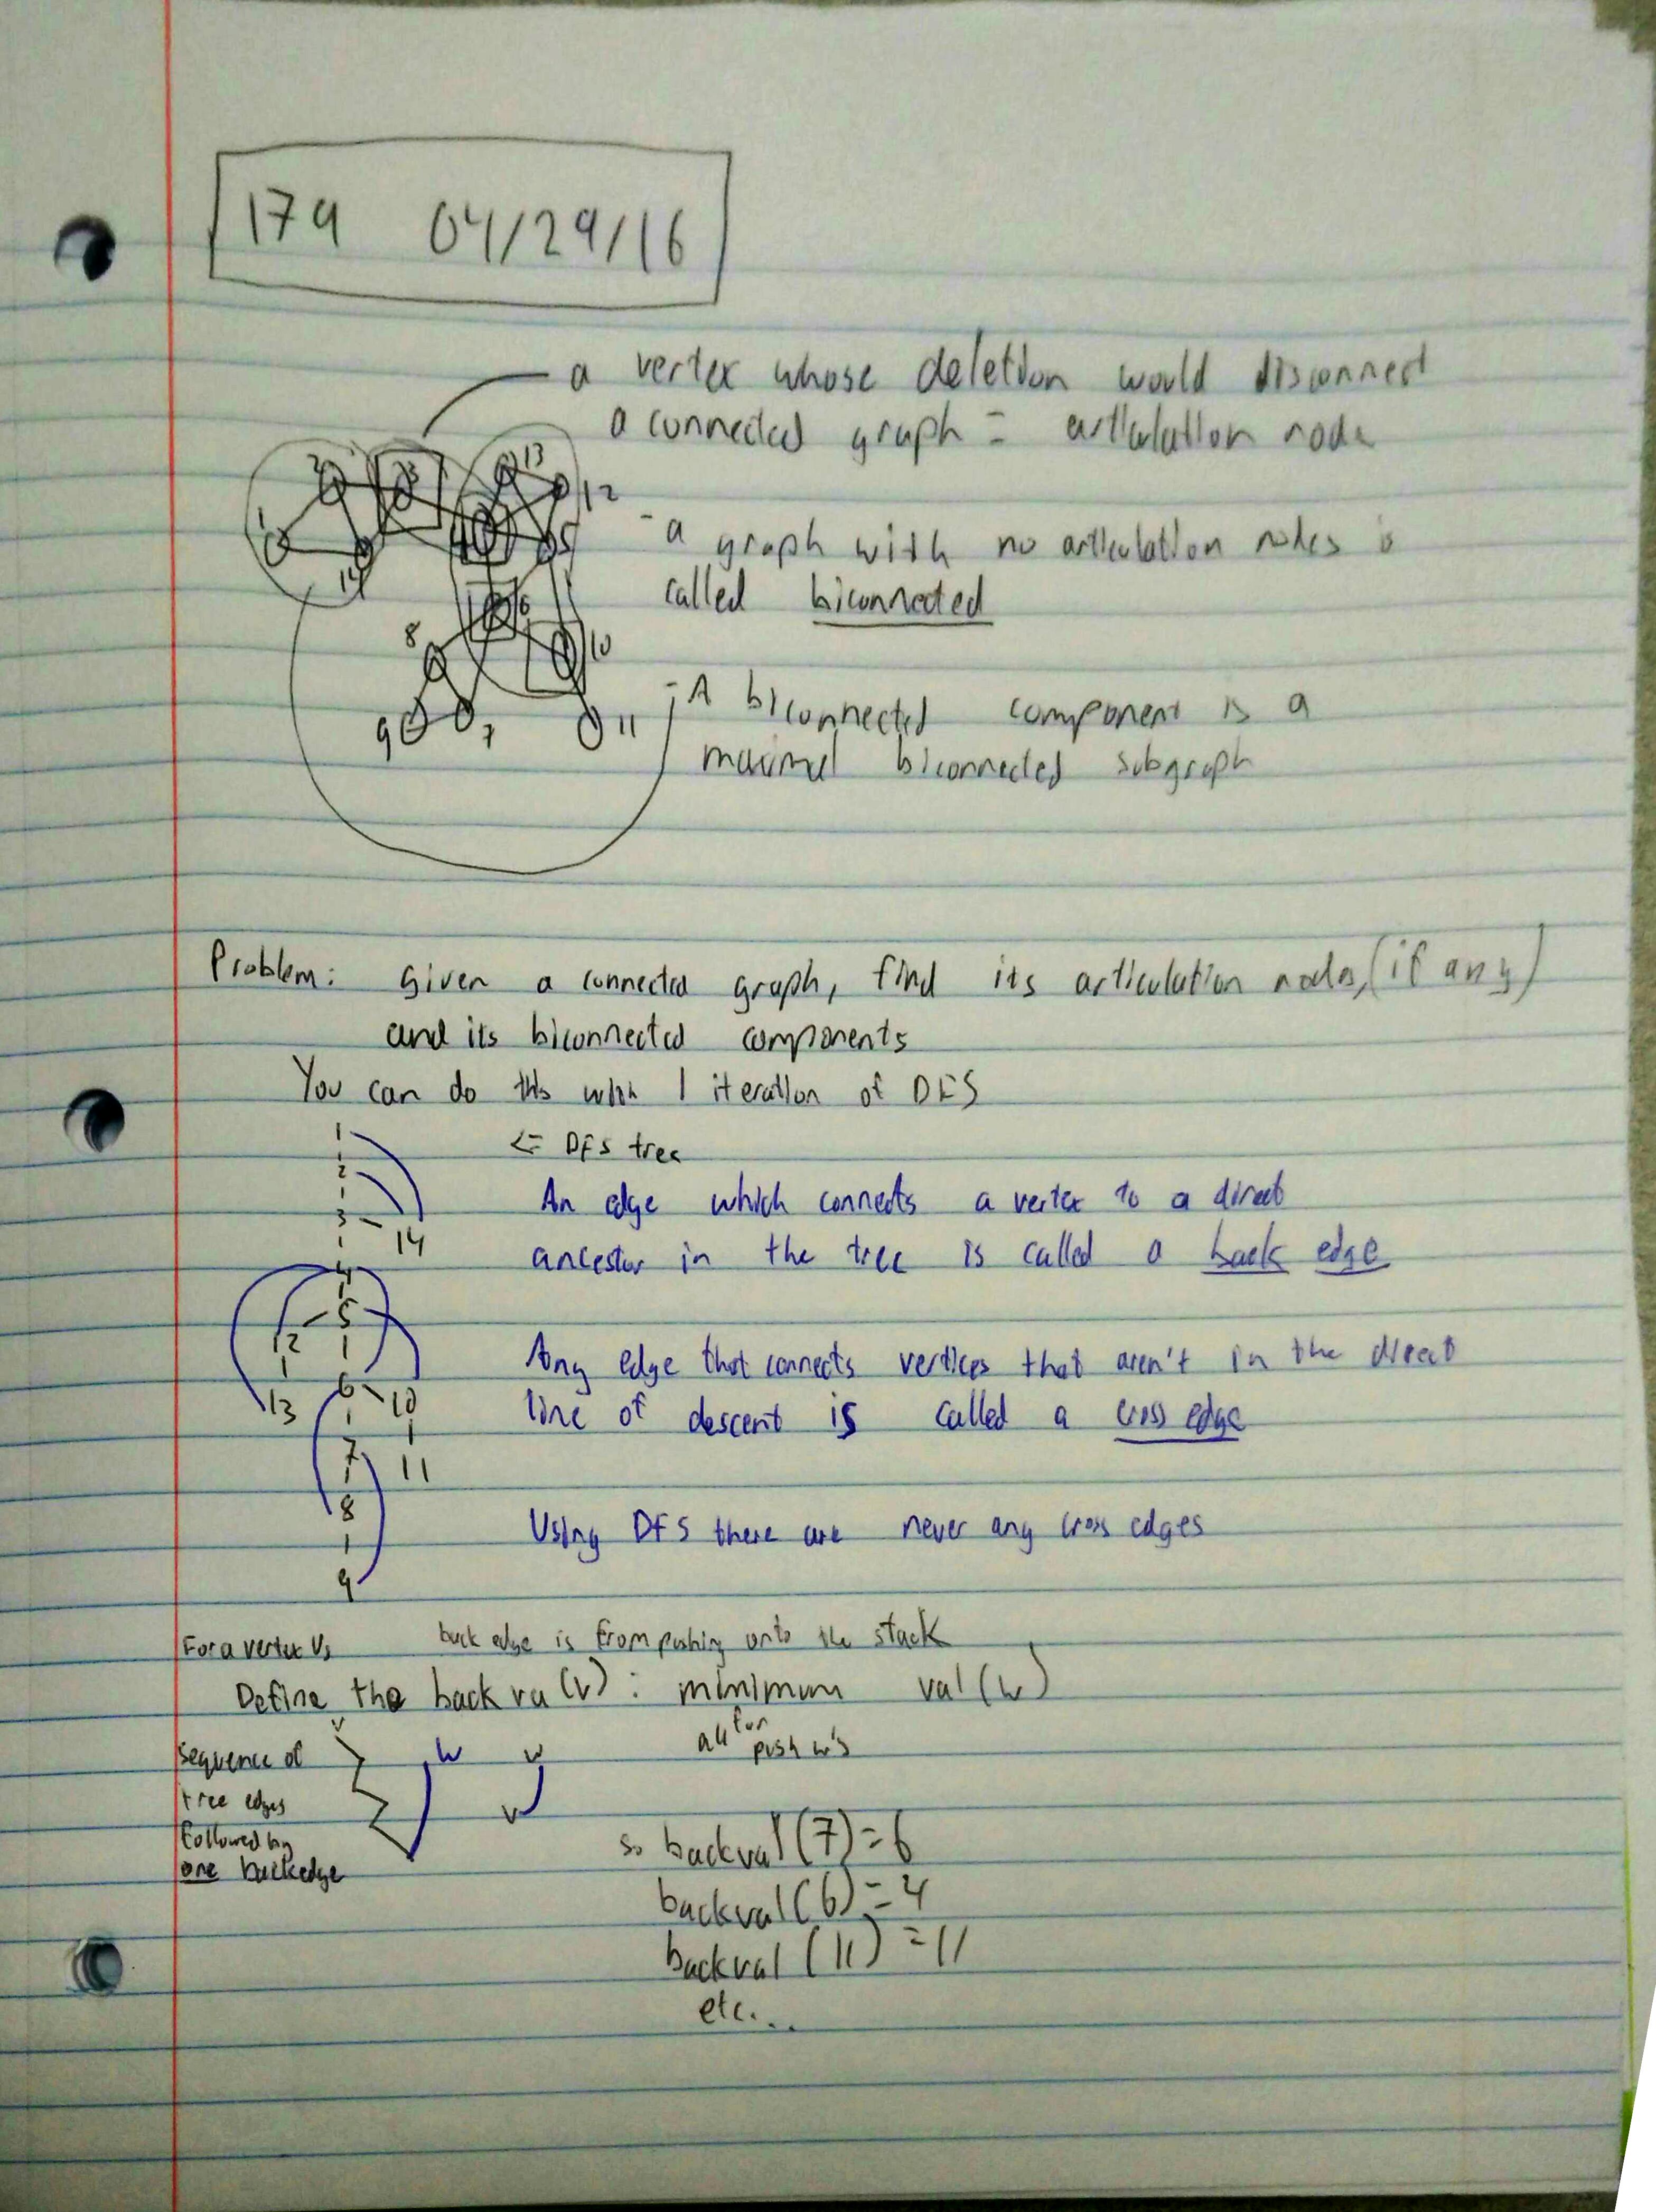 179 04/29/16
a vertex whose deletion would disconnect
a connected graph = articulation node
1 2 3 13 12
14 4 5
- a graph with no articulation nodes is
called biconnected
8 6 10
9 7 11
- A biconnected component is a
maximal biconnected subgraph
Problem: Given a connected graph, find its articulation nodes, (if any)
and its biconnected components
You can do this with 1 iteration of DFS
1
<= DFS tree
2
An edge which connects a vertex to a direct
3
14
ancestor in the tree is called a back edge
4
5
12
Any edge that connects vertices that aren't in the direct
13 6 10
line of descent is called a cross edge
7 11
8
Using DFS there are never any cross edges
9
For a vertex V,
back edge is from pushing onto the stack
Define the back va(v): minimum val(w)
for
all push w's
v
w w
v
sequence of
tree edges
followed by
one backedge
so backval(7)=6
backval(6)=4
backval(11)=11
etc...